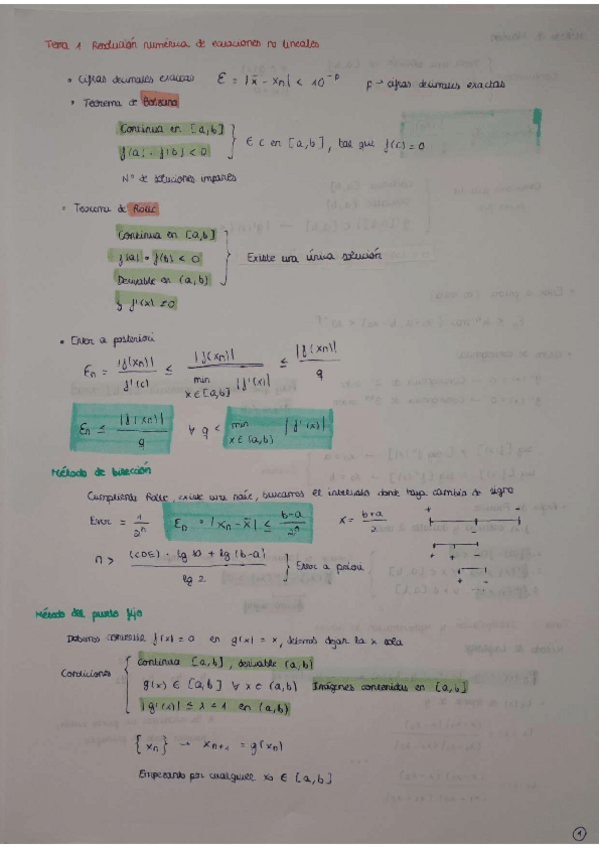 Tema 1 Resolución numérica de ecuaciones no lineales
• Cifras decimales exactas ε = |x̄ - xn| < 10^-p p → cifras decimales exactas
• Teorema de Bolzano
Continua en [a,b]
f(a) · f(b) < 0 } ∈ c en [a,b], tal que f(c) = 0
Nº de soluciones impares
• Teorema de Rolle
Continua en [a,b]
f(a) · f(b) < 0
Derivable en (a,b) } Existe una única solución
y f'(x) ≠ 0
• Error a posteriori
En = |f(xn)| / f'(c) ≤ |f(xn)| / min x∈[a,b] |f'(x)| ≤ |f(xn)| / q
En ≤ |f(xn)| / q ∀ q < min x∈(a,b) |f'(x)|
Método de bisección
Cumpliendo Rolle, existe una raíz, buscamos el intervalo donde haya cambio de signo
Error = 1/2^n En = |xn - x̄| ≤ (b-a)/2^n x = (b+a)/2
n > ((CDE) · lg 10 + lg (b-a)) / lg 2 } Error a priori
Método del punto fijo
Debemos convertir f(x) = 0 en g(x) = x, debemos dejar la x sola
Condiciones { continua [a,b], derivable (a,b)
g(x) ∈ [a,b] ∀ x ∈ (a,b) Imágenes contenidas en [a,b]
|g'(x)| ≤ λ < 1 en (a,b)
{xn} → xn+1 = g(xn)
Empezando por cualquier x0 ∈ [a,b]
1